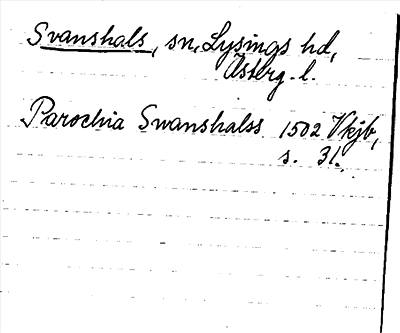 Svanshals, sn, Lysings hd,
Österg. l.
Parochia Swanshalss 1502 Vkjb,
s. 31.